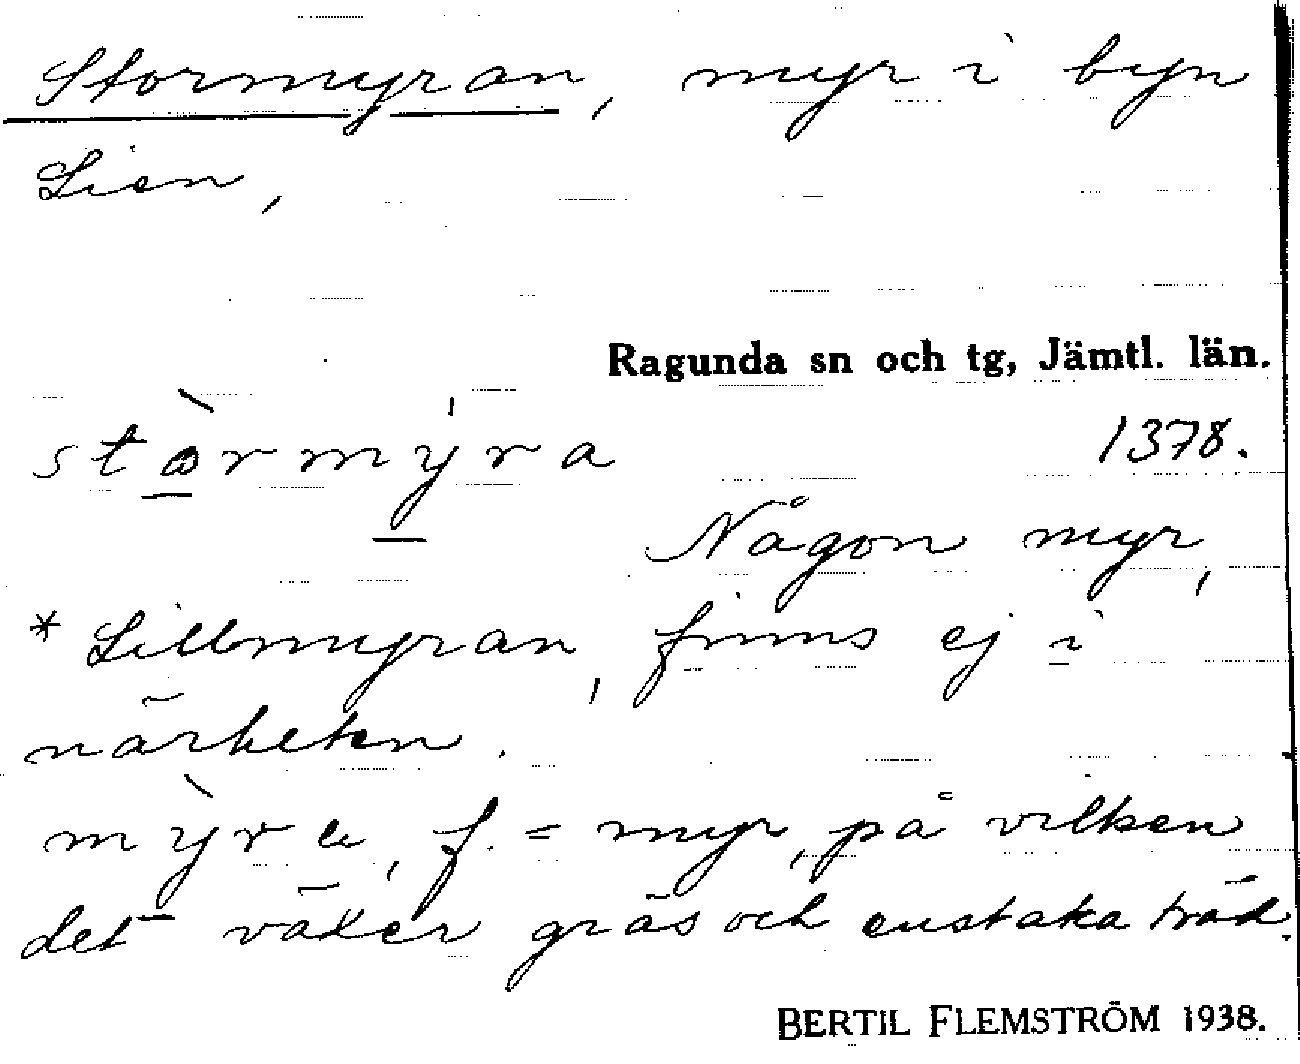 Stormyran, myr i byn
Lien,
Ragunda sn och tg, Jämtl. län.
stò̱rmý̱ra
1378.
Någon myr,
* Lillmyran, finns ej i
närheten.
mỳra, f. = myr, på vilken
det växer gräs och enstaka träd.
BERTIL FLEMSTRÖM 1938.